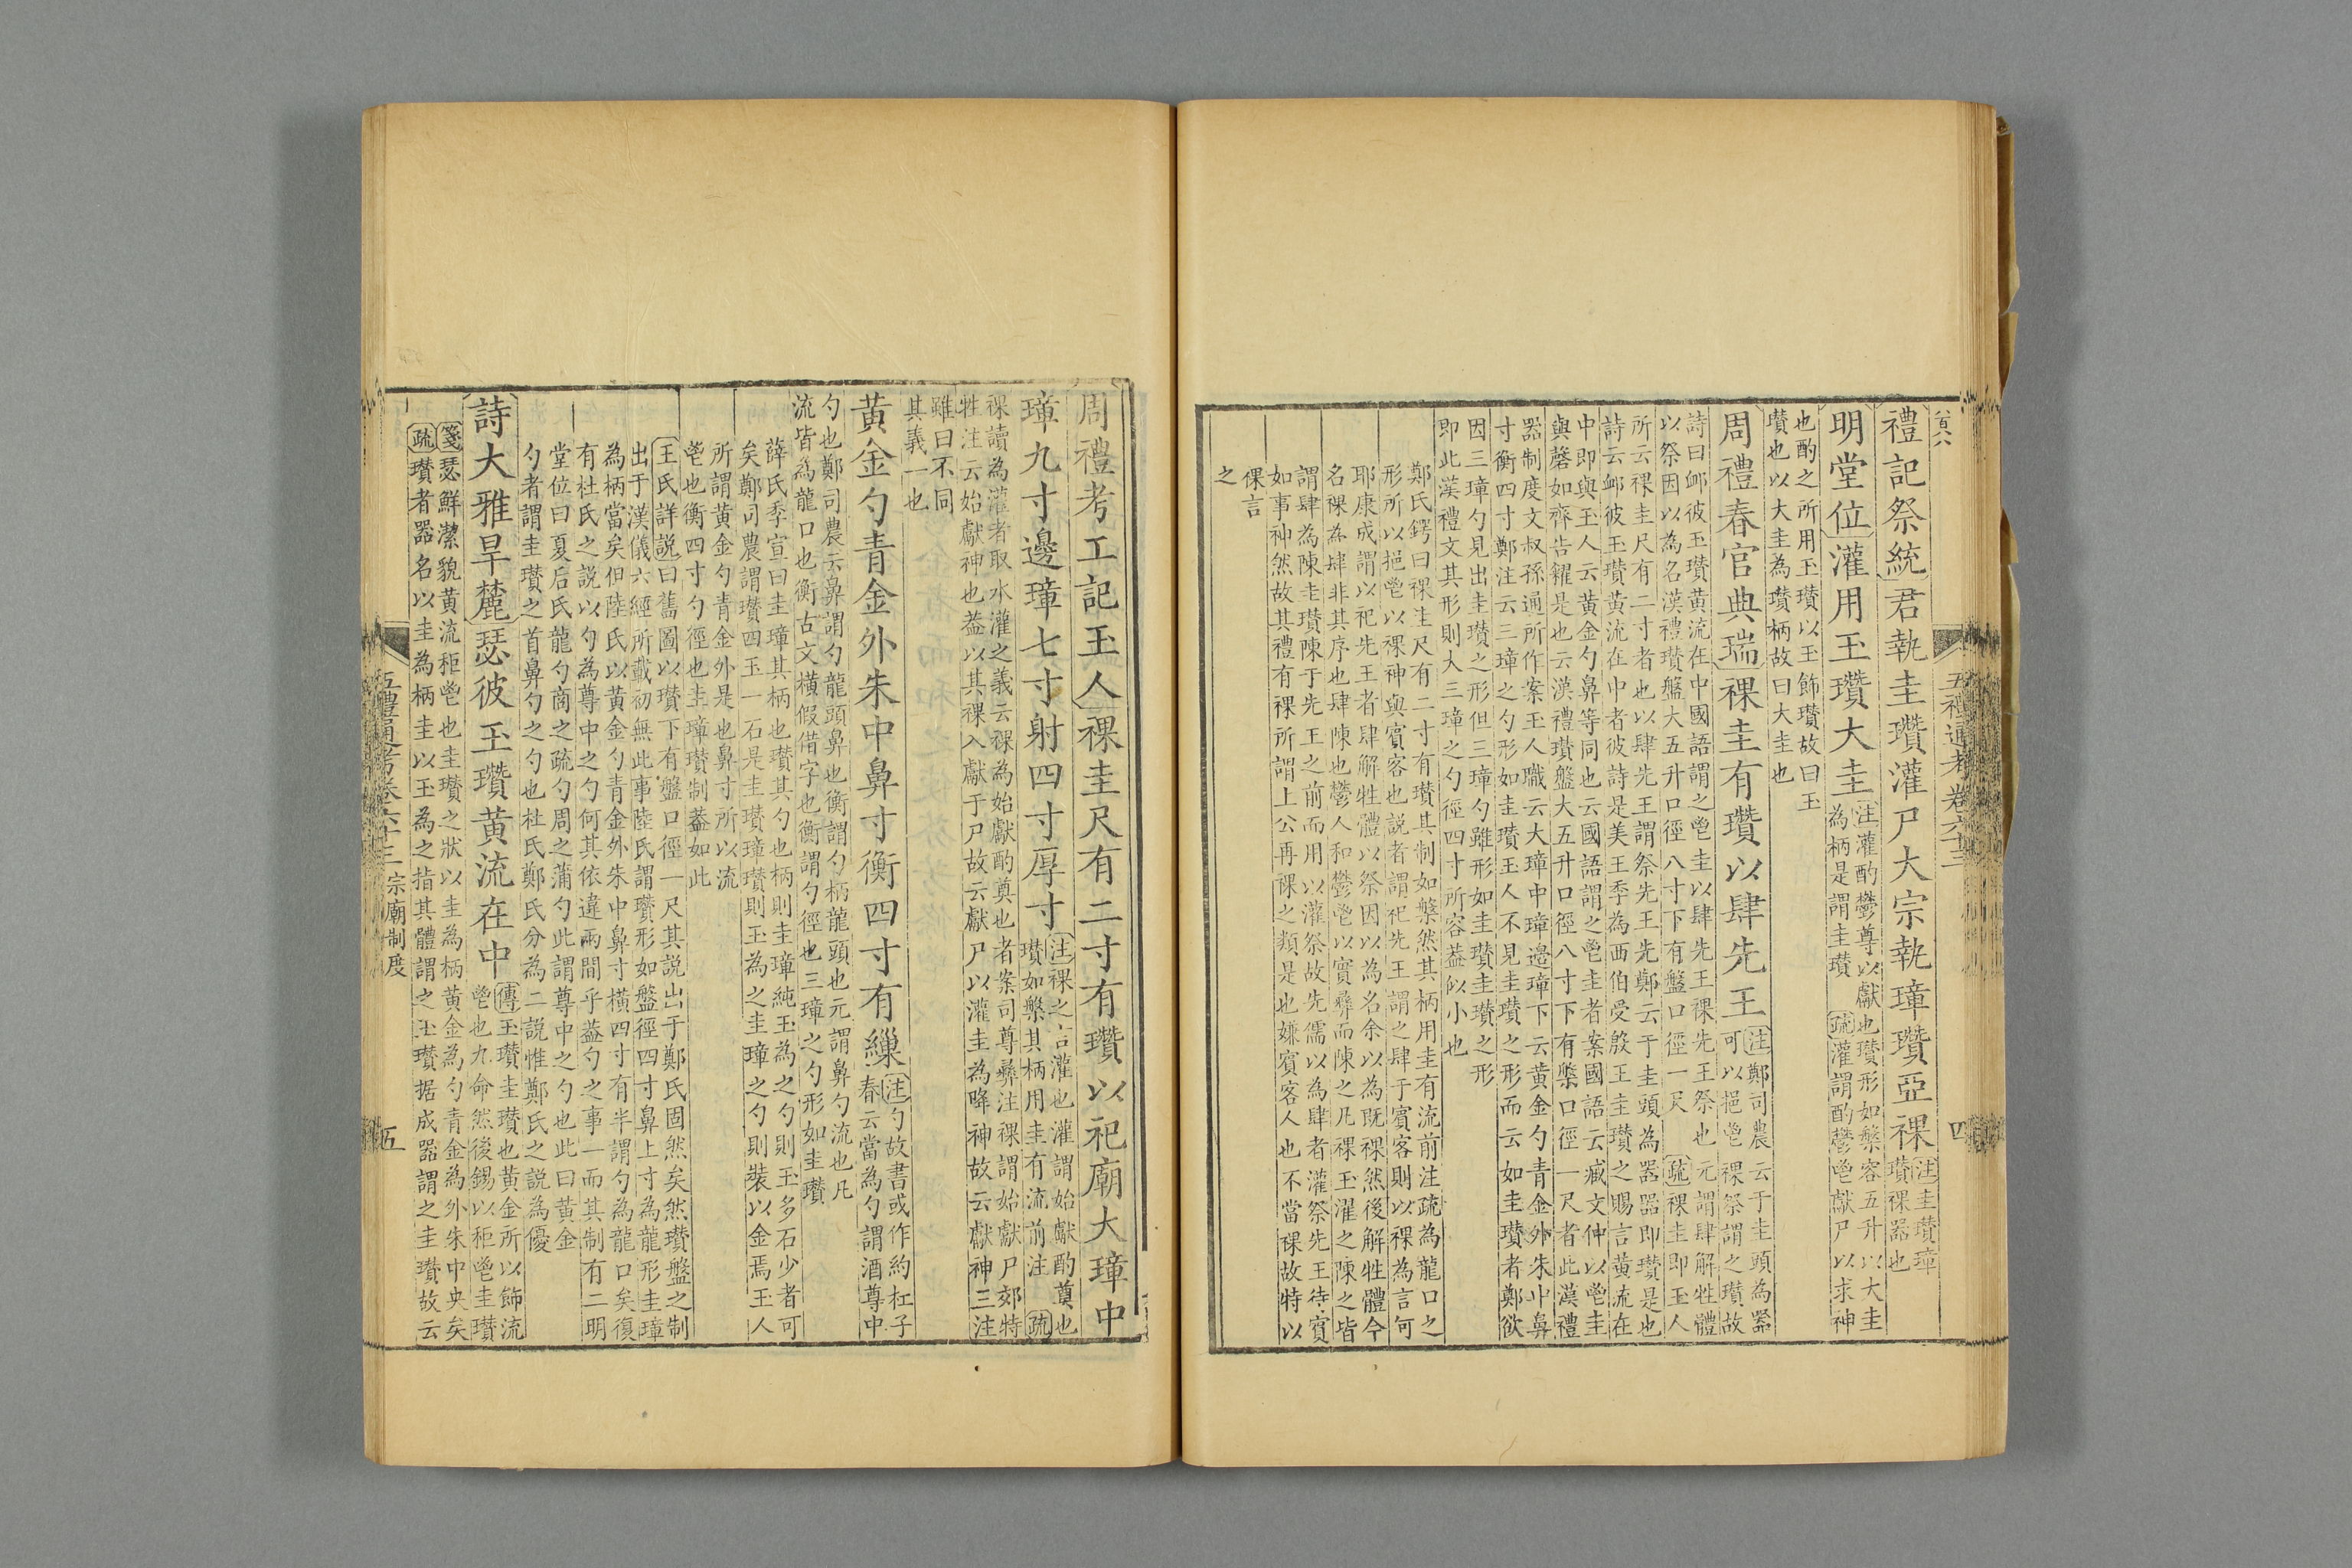 禮記祭統君執圭瓚灌尸大宗執璋瓚亞祼注圭瓚璋
瓚祼器也
明堂位灌用玉瓚大圭注灌酌鬱尊以獻也瓚形如槃容五升以大圭
為柄是謂圭瓚 疏灌謂酌鬱鬯獻尸以求神
也酌之所用玉瓚以玉飾瓚故曰玉
瓚也以大圭為瓚柄故曰大圭也
周禮春官典瑞祼圭有瓚以肆先王注鄭司農云于圭頭為器
可以挹鬯祼祭謂之瓚故
詩曰卹彼玉瓚黃流在中國語謂之鬯圭以肆先王祼先王祭也 元謂肆解牲體
以祭因以為名漢禮瓚盤大五升口徑八寸下有盤口徑一尺 疏祼圭即玉人
所云祼圭尺有二寸者也以肆先王謂祭先王先鄭云于圭頭為器器即瓚是也
詩云卹彼玉瓚黃流在中者彼詩是美王季為西伯受殷王圭瓚之賜言黃流在
中即與玉人云黃金勺鼻等同也云國語謂之鬯圭者案國語云臧文仲以鬯圭
與磬如齊告糴是也云漢禮瓚盤大五升口徑八寸下有槃口徑一尺者此漢禮
器制度文叔孫通所作案玉人職云大璋中璋邊璋下云黃金勺青金外朱中鼻
寸衡四寸鄭注云三璋之勺形如圭瓚玉人不見圭瓚之形而云如圭瓚者鄭欲
因三璋勺見出圭瓚之形但三璋勺雖形如圭瓚圭瓚之形
即此漢禮文其形則大三璋之勺徑四寸所容葢似小也
鄭氏鍔曰祼圭尺有二寸有瓚其制如槃然其柄用圭有流前注疏為龍口之
形所以挹鬯以祼神與賓客也説者謂祀先王謂之肆于賓客則以祼為言何
耶康成謂以祀先王者肆解牲體以祭因以為名余以為既祼然後解牲體今
名祼為肆非其序也肆陳也鬱人和鬱鬯以實彝而陳之凡祼玉濯之陳之皆
謂肆為陳圭瓚陳于先王之前而用以灌祭故先儒以為肆者灌祭先王待賓
如事神然故其禮有祼所謂上公再祼之類是也嫌賓客人也不當祼故特以
祼言
之
五禮通考 卷六十三
四
周禮考工記玉人祼圭尺有二寸有瓚以祀廟大璋中
璋九寸邊璋七寸射四寸厚寸注祼之言灌也灌謂始獻酌奠也
瓚如槃其柄用圭有流前注 疏
祼讀為灌者取水灌之義云祼為始獻酌奠也者案司尊彝注祼謂始獻尸郊特
牲注云始獻神也葢以其祼入獻于尸故云獻尸以灌圭為降神故云獻神三注
雖曰不同
其義一也
黃金勺青金外朱中鼻寸衡四寸有繅注勺故書或作約杜子
春云當為勺謂酒尊中
勺也鄭司農云鼻謂勺龍頭鼻也衡謂勺柄龍頭也元謂鼻勺流也凡
流皆為龍口也衡古文橫假借字也衡謂勺徑也三璋之勺形如圭瓚
薛氏季宣曰圭璋其柄也瓚其勺也柄則圭璋純玉為之勺則玉多石少者可
矣鄭司農謂瓚四玉一石是圭瓚璋瓚則玉為之圭璋之勺則裝以金焉玉人
所謂黃金勺青金外是也鼻寸所以流
鬯也衡四寸勺徑也圭璋瓚制葢如此
王氏詳説曰舊圖以瓚下有盤口徑一尺其説出于鄭氏固然矣然瓚盤之制
出于漢儀六經所載初無此事陸氏謂瓚形如盤徑四寸鼻上寸為龍形圭璋
為柄當矣但陸氏以黃金勺青金外朱中鼻寸橫四寸有半謂勺為龍口矣復
有杜氏之説以勺為尊中之勺何其依違兩間乎葢勺之事一而其制有二明
堂位曰夏后氏龍勺商之疏勺周之蒲勺此謂尊中之勺也此曰黃金
勺者謂圭瓚之首鼻勺之勺也杜氏鄭氏分為二説惟鄭氏之説為優
詩大雅旱麓瑟彼玉瓚黃流在中傳玉瓚圭瓚也黃金所以飾流
鬯也九命然後錫以秬鬯圭瓚
箋瑟鮮潔貌黃流秬鬯也圭瓚之狀以圭為柄黃金為勺青金為外朱中央矣
疏瓚者器名以圭為柄圭以玉為之指其體謂之玉瓚据成器謂之圭瓚故云
五禮通考卷六十三 宗廟制度
五